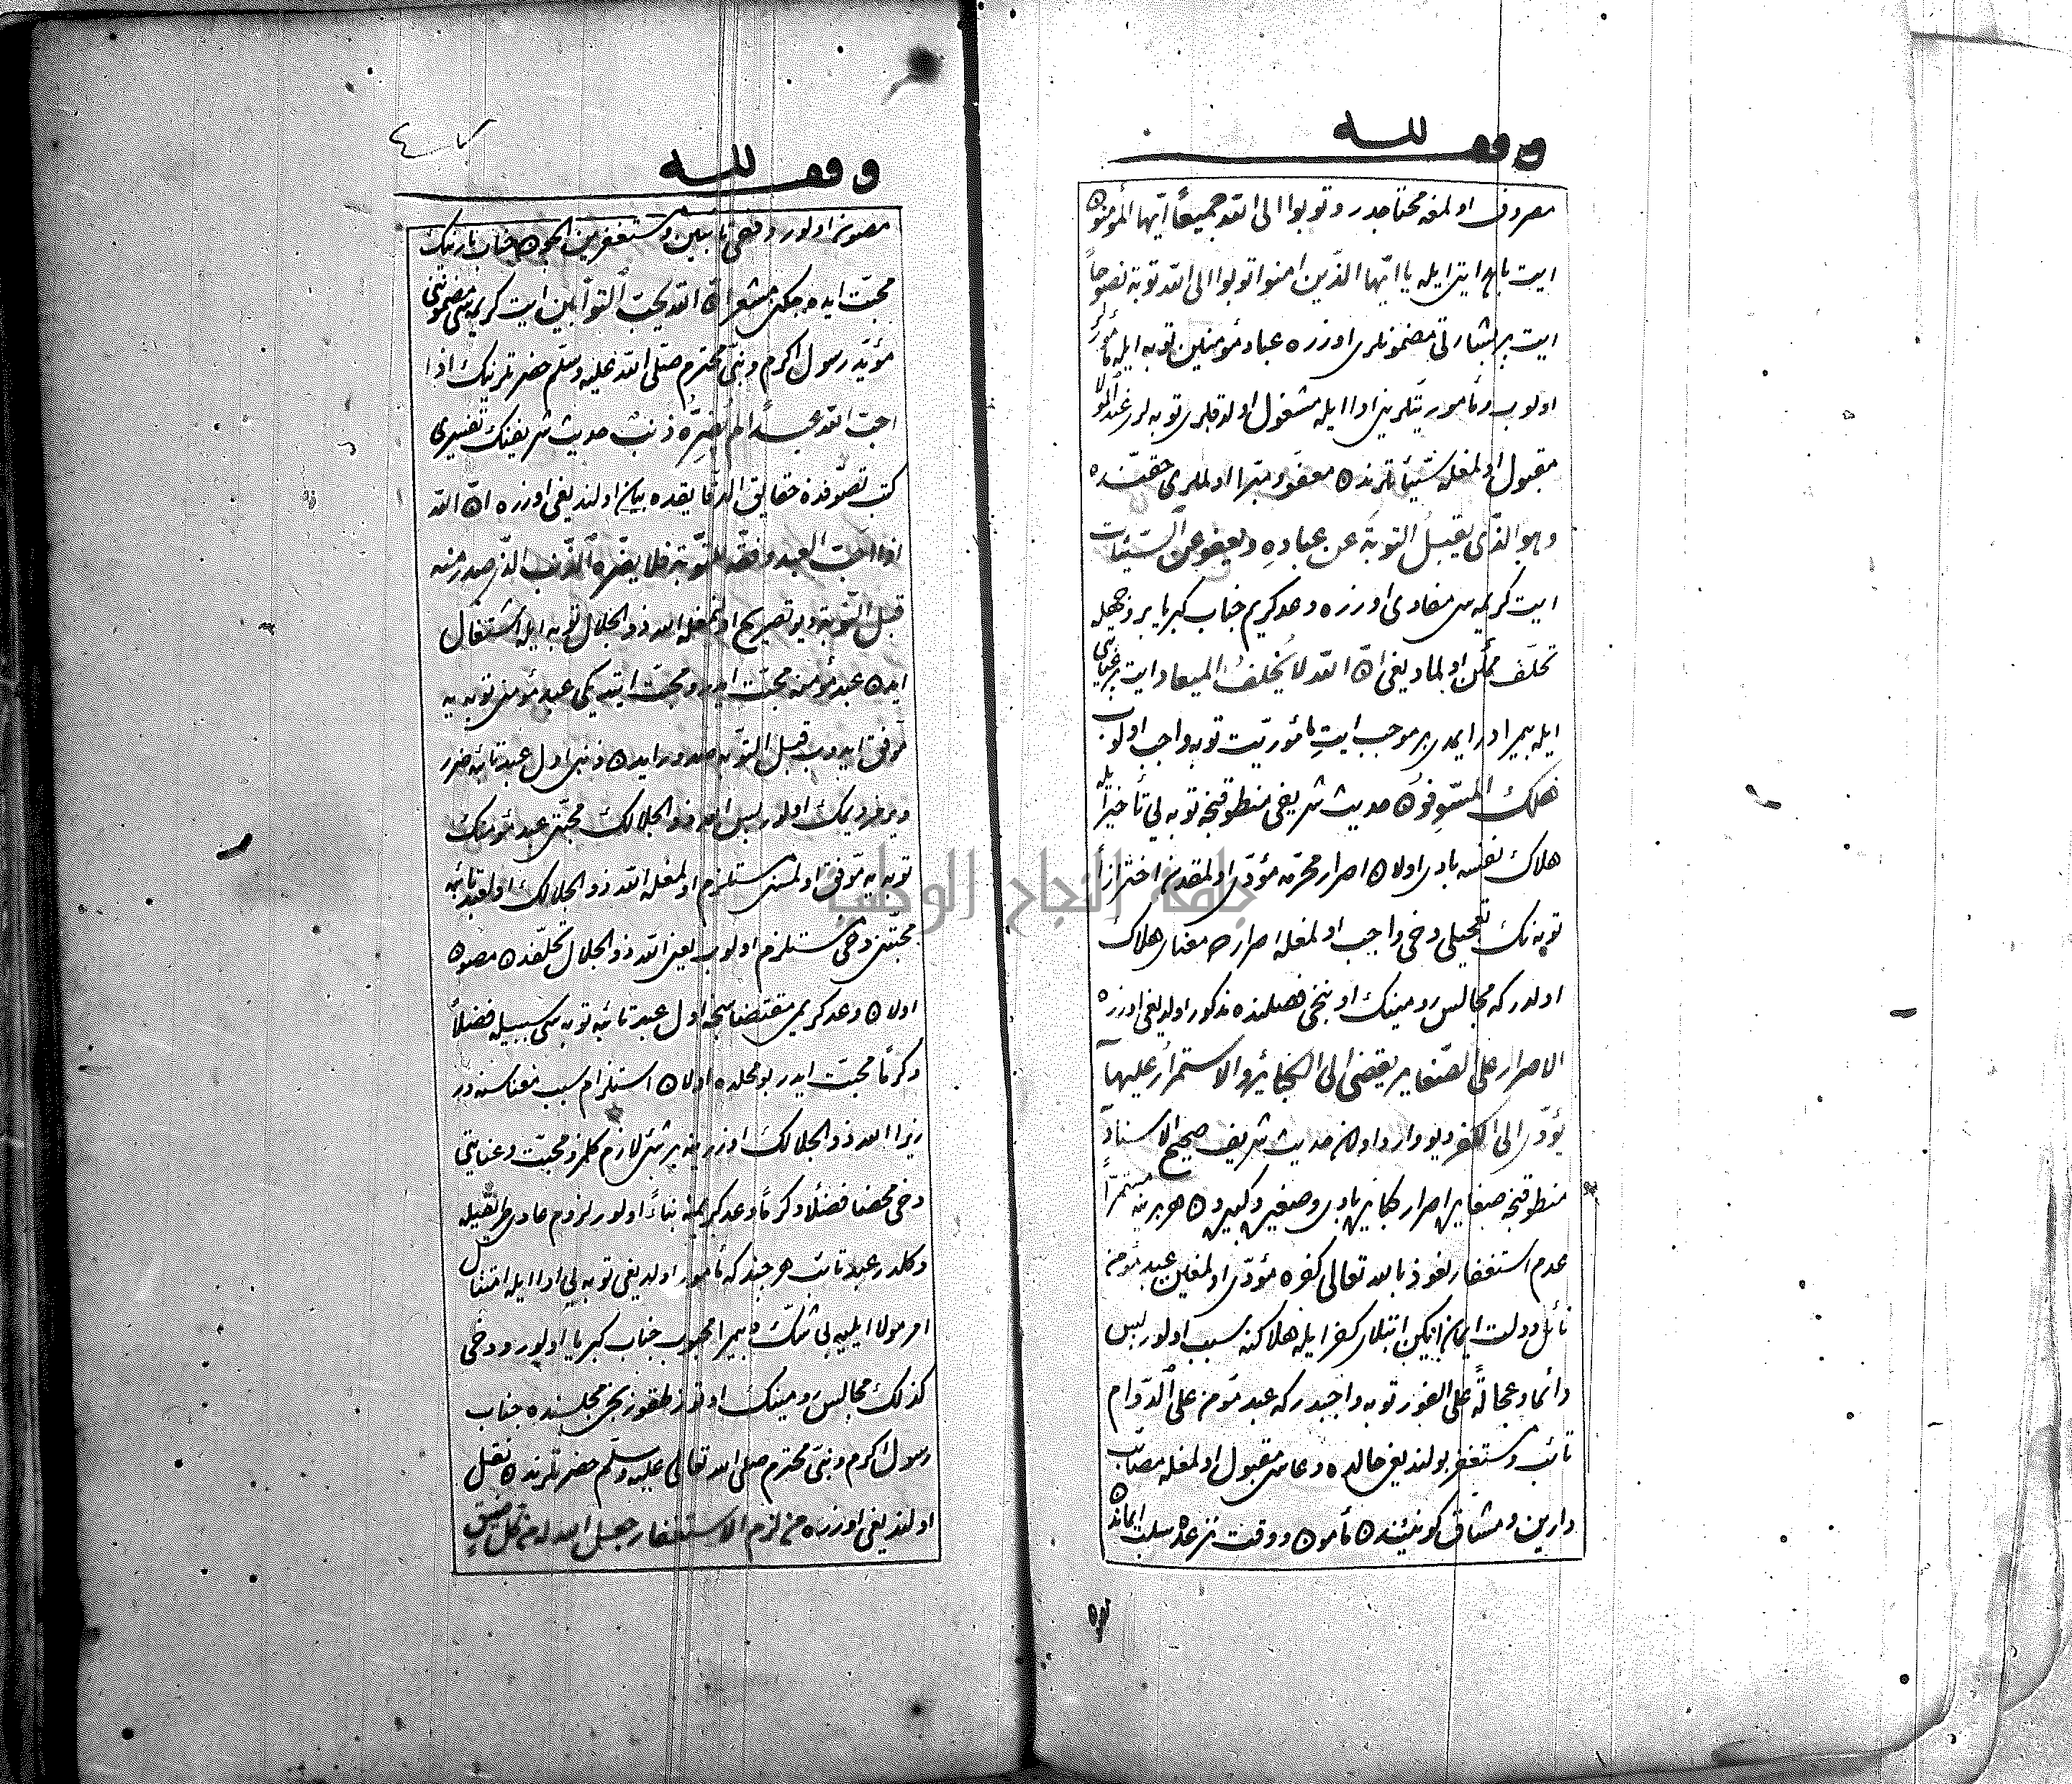 وقف لله
مصروف اولمغه محتاجدر وتوبوا الى الله جميعاً ايّها المؤمنون
ايت باهدايتى ايله يا ايّها الذّين امنوا توبوا الى الله توبة نصوحاً
ايت پر بشارتى مضمونلرى اوزره عباد مؤمنين توبه ايله مأمورلر
اولوب مأموريّتلرينى ادا ايله مشغول اولدقلرى توبه لرى عند المولا
مقبول اولمغله سيّئاتلرندن معفوّ ومبّرا اولملرى حقّنده
وهو الذّى يقبل التوبة عن عباده ويعفو عن السّيّئات
ايت كريمه سى مفادى اوزره وعد كريم جناب كبريا بر وجهله
تخلّف ممكن اولماديغى انّ الله لا يخلف الميعاد ايت پر عنايتى
ايله بيمرا در ايمدى بر موجب ايتِ مأموريّت توبه واجب اولوب
هلك المسّوفون حديث شريفى منطوقنجه توبه يى تأخير ايله
هلاك نفسه بادى اولان اصرار محرّمه مؤدّى اولمقدن احترازاً
توبه نك تعجيلى دخى واجب اولمغله اصراره معناى هلاك
اولدر كه مجالس رومينك اونجى فصلنده مذكور اولديغى اوزره
الاصرار على الصّغاير يفضى الى الكبائر والاستمرار عليها
يؤدّى الى الكفر ديو وارد اولان حديث شريف صحيح الاسناد
منطوقنجه صغايره اصرار كبايره بادى وصغيره وكبيره دن هر برينه مستمرّاً
عدم استغفار نعوذ بالله تعالى كفره مؤدّى اولمغين عبد مؤمنه
نائل دولت ايمان ايكن ابتلاى كفر ايله هلاكنه سبب اولور پس
دائما وعجالةً على الفور توبه واجبدر كه عبد مؤمن على الدّوام
تائب ومستغفر بولنديغى حالده دعاسى مقبول اولمغله مصائب
دارين ومشاق كونيندن مأمون ووقت نزعده سلب ايماندن
وقف لله
مصون اولور وفى تائبين ومستغفرين الجون جناب بارينك
محبّت ايده جكى مشعر انّ الله يحبّ التوّابين ايت كريمه سى مضموننى
مؤيّد رسول اكرم ونبىّ محترم صلّى الله عليه وسلّم حضرتلرينك اذا
احبّ الله عبداً لم يضرّه ذنب حديث شريفنك تفسيرى
كتب تصوّفدن حقايق الدّقايقده بيان اولنديغى اوزره انّ الله
اذا احبّ العبد وفقه للتوبة فلا يضرّه الذّنب الذّى صدر منه
قبل التّوبة ديو تصريح اولنمغله الله ذو الجلال توبه ايله اشتغال
ايدن عبد مؤمنه محبّت ايدر ومحبّت ايتديكى عبد مؤمنى توبه يه
موّفق ايدوب قبل التوبه صدور ايدن ذنبى اول عبد تائبه ضرر
ويرمز ديمك اولور پس الله ذو الجلالك محبّتى عبد مؤمنك
توبه يه موّفق اولمسنى مستلزم اولمغله الله ذو الجلالك اول عبد تائبه
محبّتنى دخى مستلزم اولوب يعنى الله ذو الجلال تخلّفدن مصون
اولان وعد كريمى مقتضاسنجه اول عبد تائبه توبه سى سببيله فضلاً
وكرماً محبّت ايدر بو محلده اولان استلزام سبب معناسنه در
زيرا الله ذو الجلالك اوزرينه بر شئ لازم كلمز ومحبّت وعنايتى
دخى محضا فضلاً وكرماً وعد كريمنه بناءً اولور لزوم عادى طريقيله
دكلدر عبد تائب هر چند كه مأمور اولديغى توبه يى ادا ايله امتثال
امر مولا ايليه بى شكّ بيمرا محبوب جناب كبريا اولور ودخى
كذلك مجالس رومينك اوتوز طقوزنجى مجلسنده جناب
رسول اكرم ونبىّ محترم صلى الله تعالى عليه وسلّم حضرتلرندن نقل
اولنديغى اوزره من لزم الاستغفار جعل الله له من كل ضيق